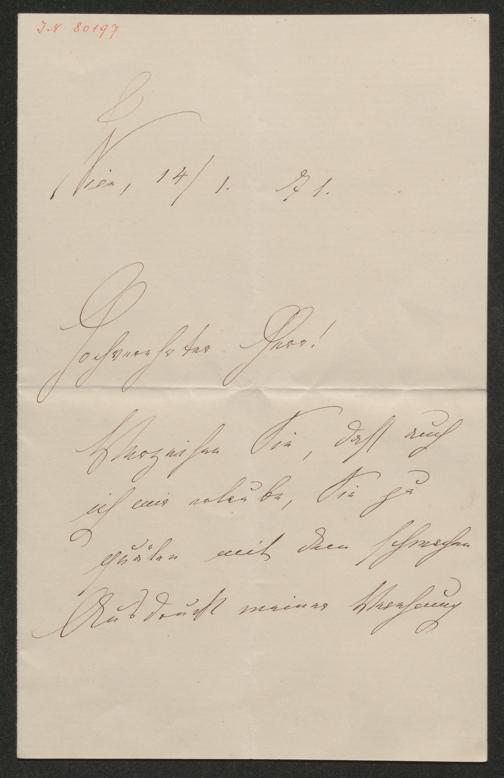 I.N 80197
Wien, 14/1. 71.
Hochverehrter Herr!
Verzeihen Sie, daß auch
ich mir erlaube, Sie zu
quälen mit dem schwachen
Ausdruck meiner Verehrung